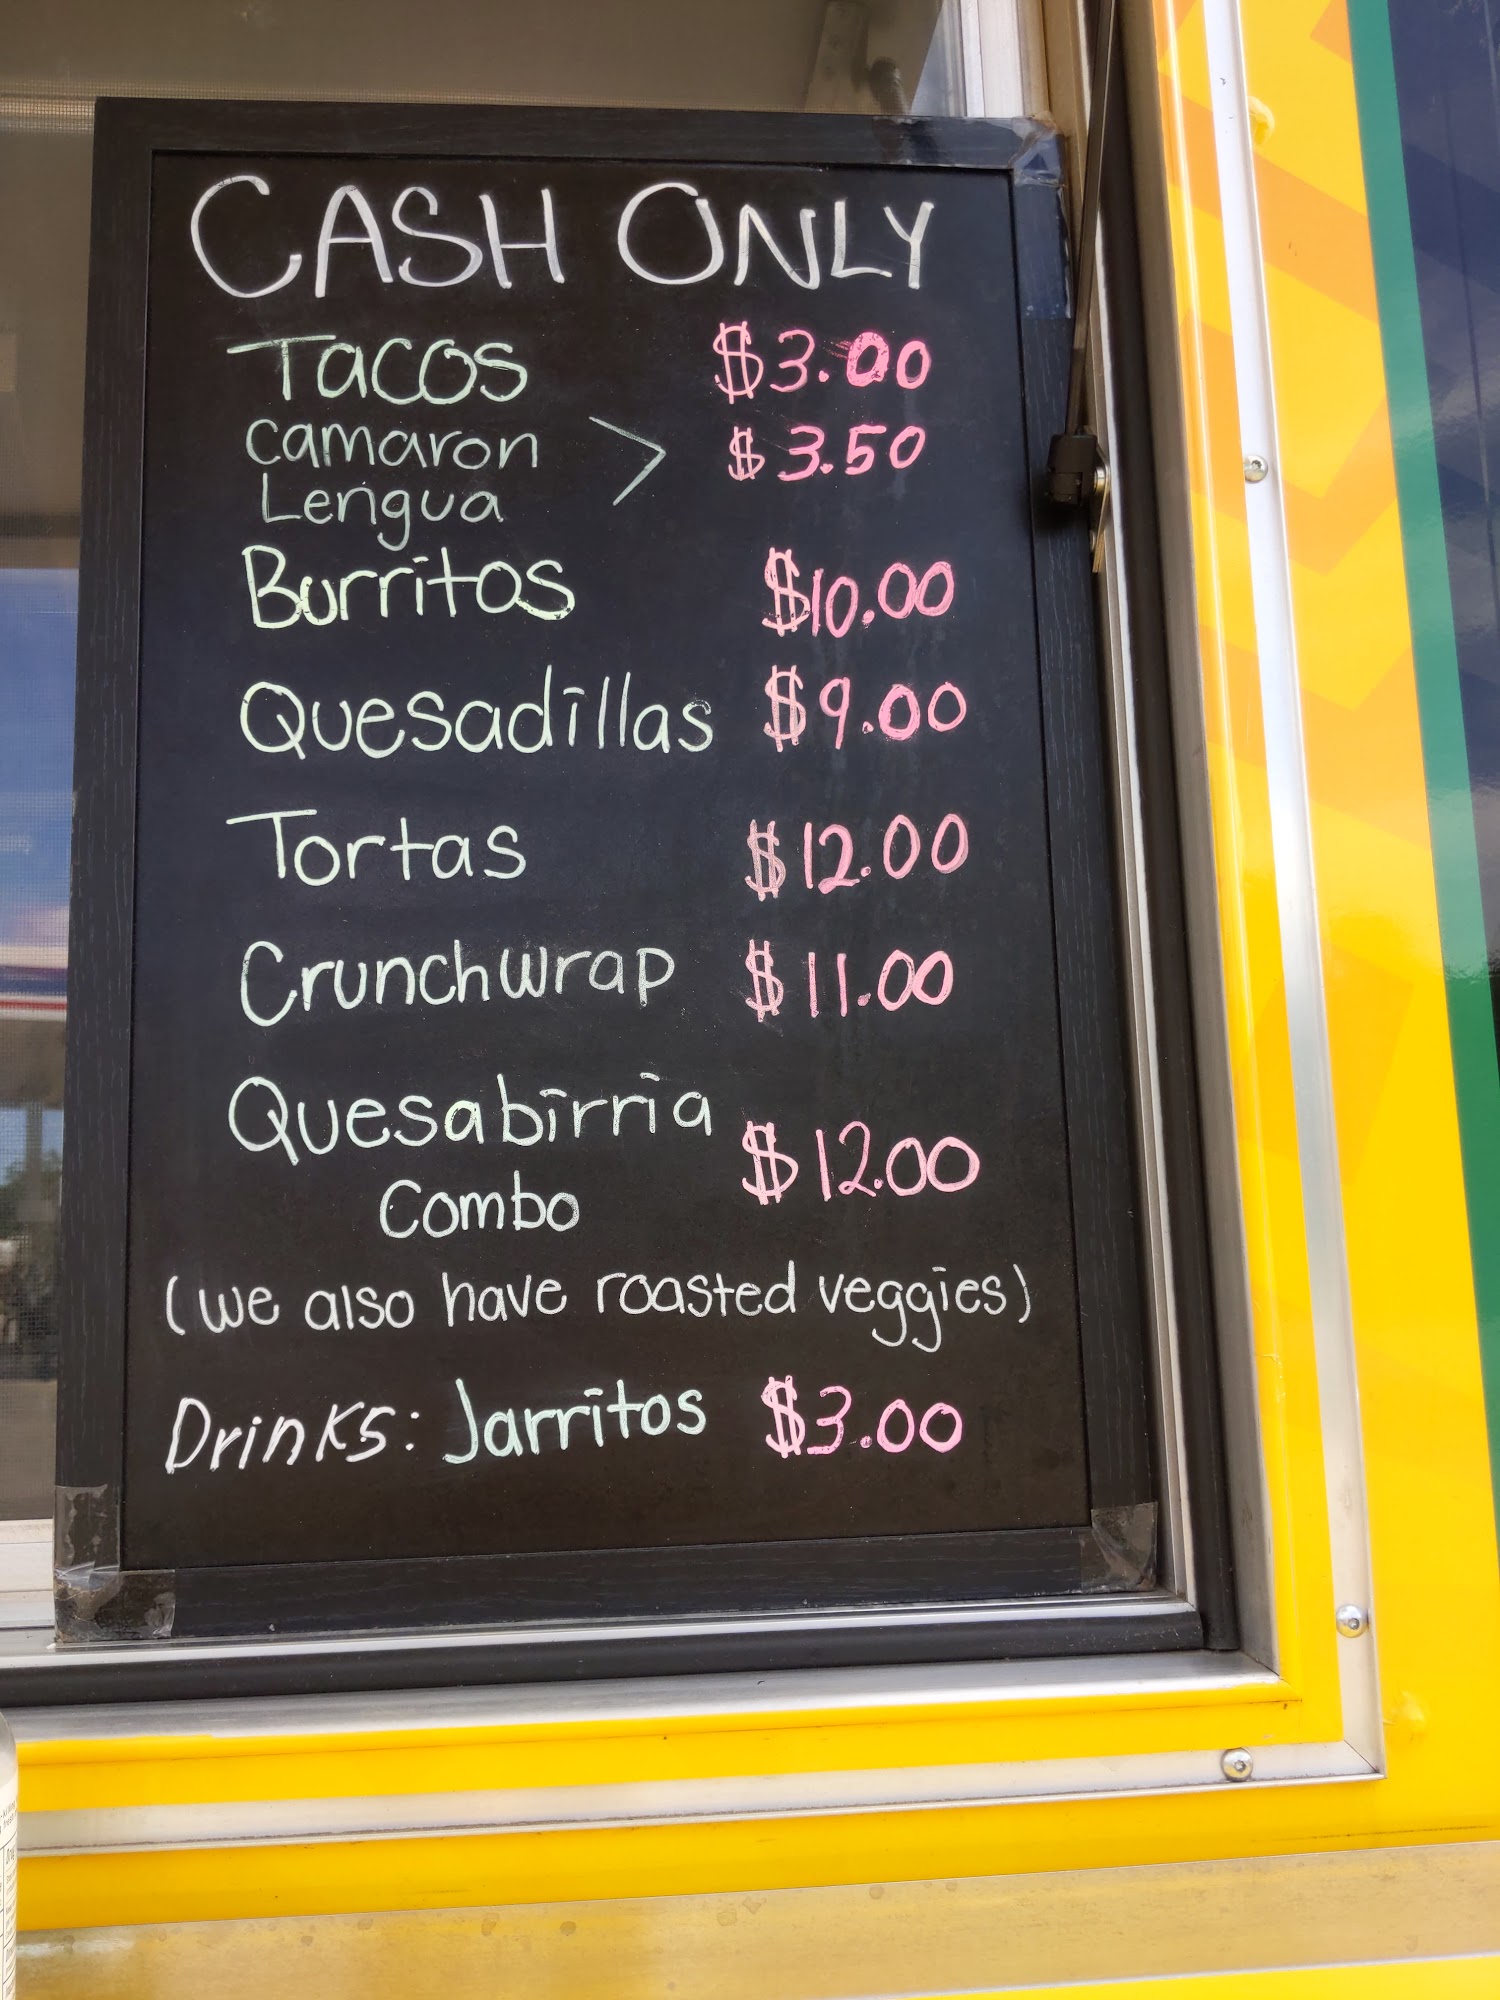 CASH ONLY
Tacos $3.00
Camaron > $3.50
Lengua
Burritos $10.00
Quesadillas $9.00
Tortas $12.00
Crunchwrap $11.00
Quesabirria $12.00
Combo
(we also have roasted veggies)
Drinks: Jarritos $3.00